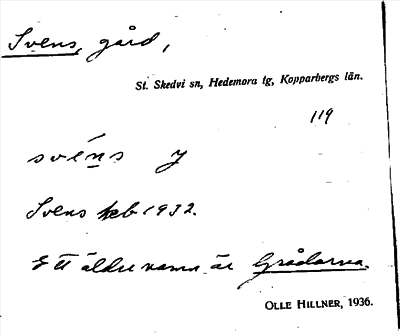 Svens, gård,
St. Skedvi sn, Hedemora tg, Kopparbergs län.
119
svéns y
Svens kb 1932.
Ett äldre namn är Grådarna.
OLLE HILLNER, 1936.